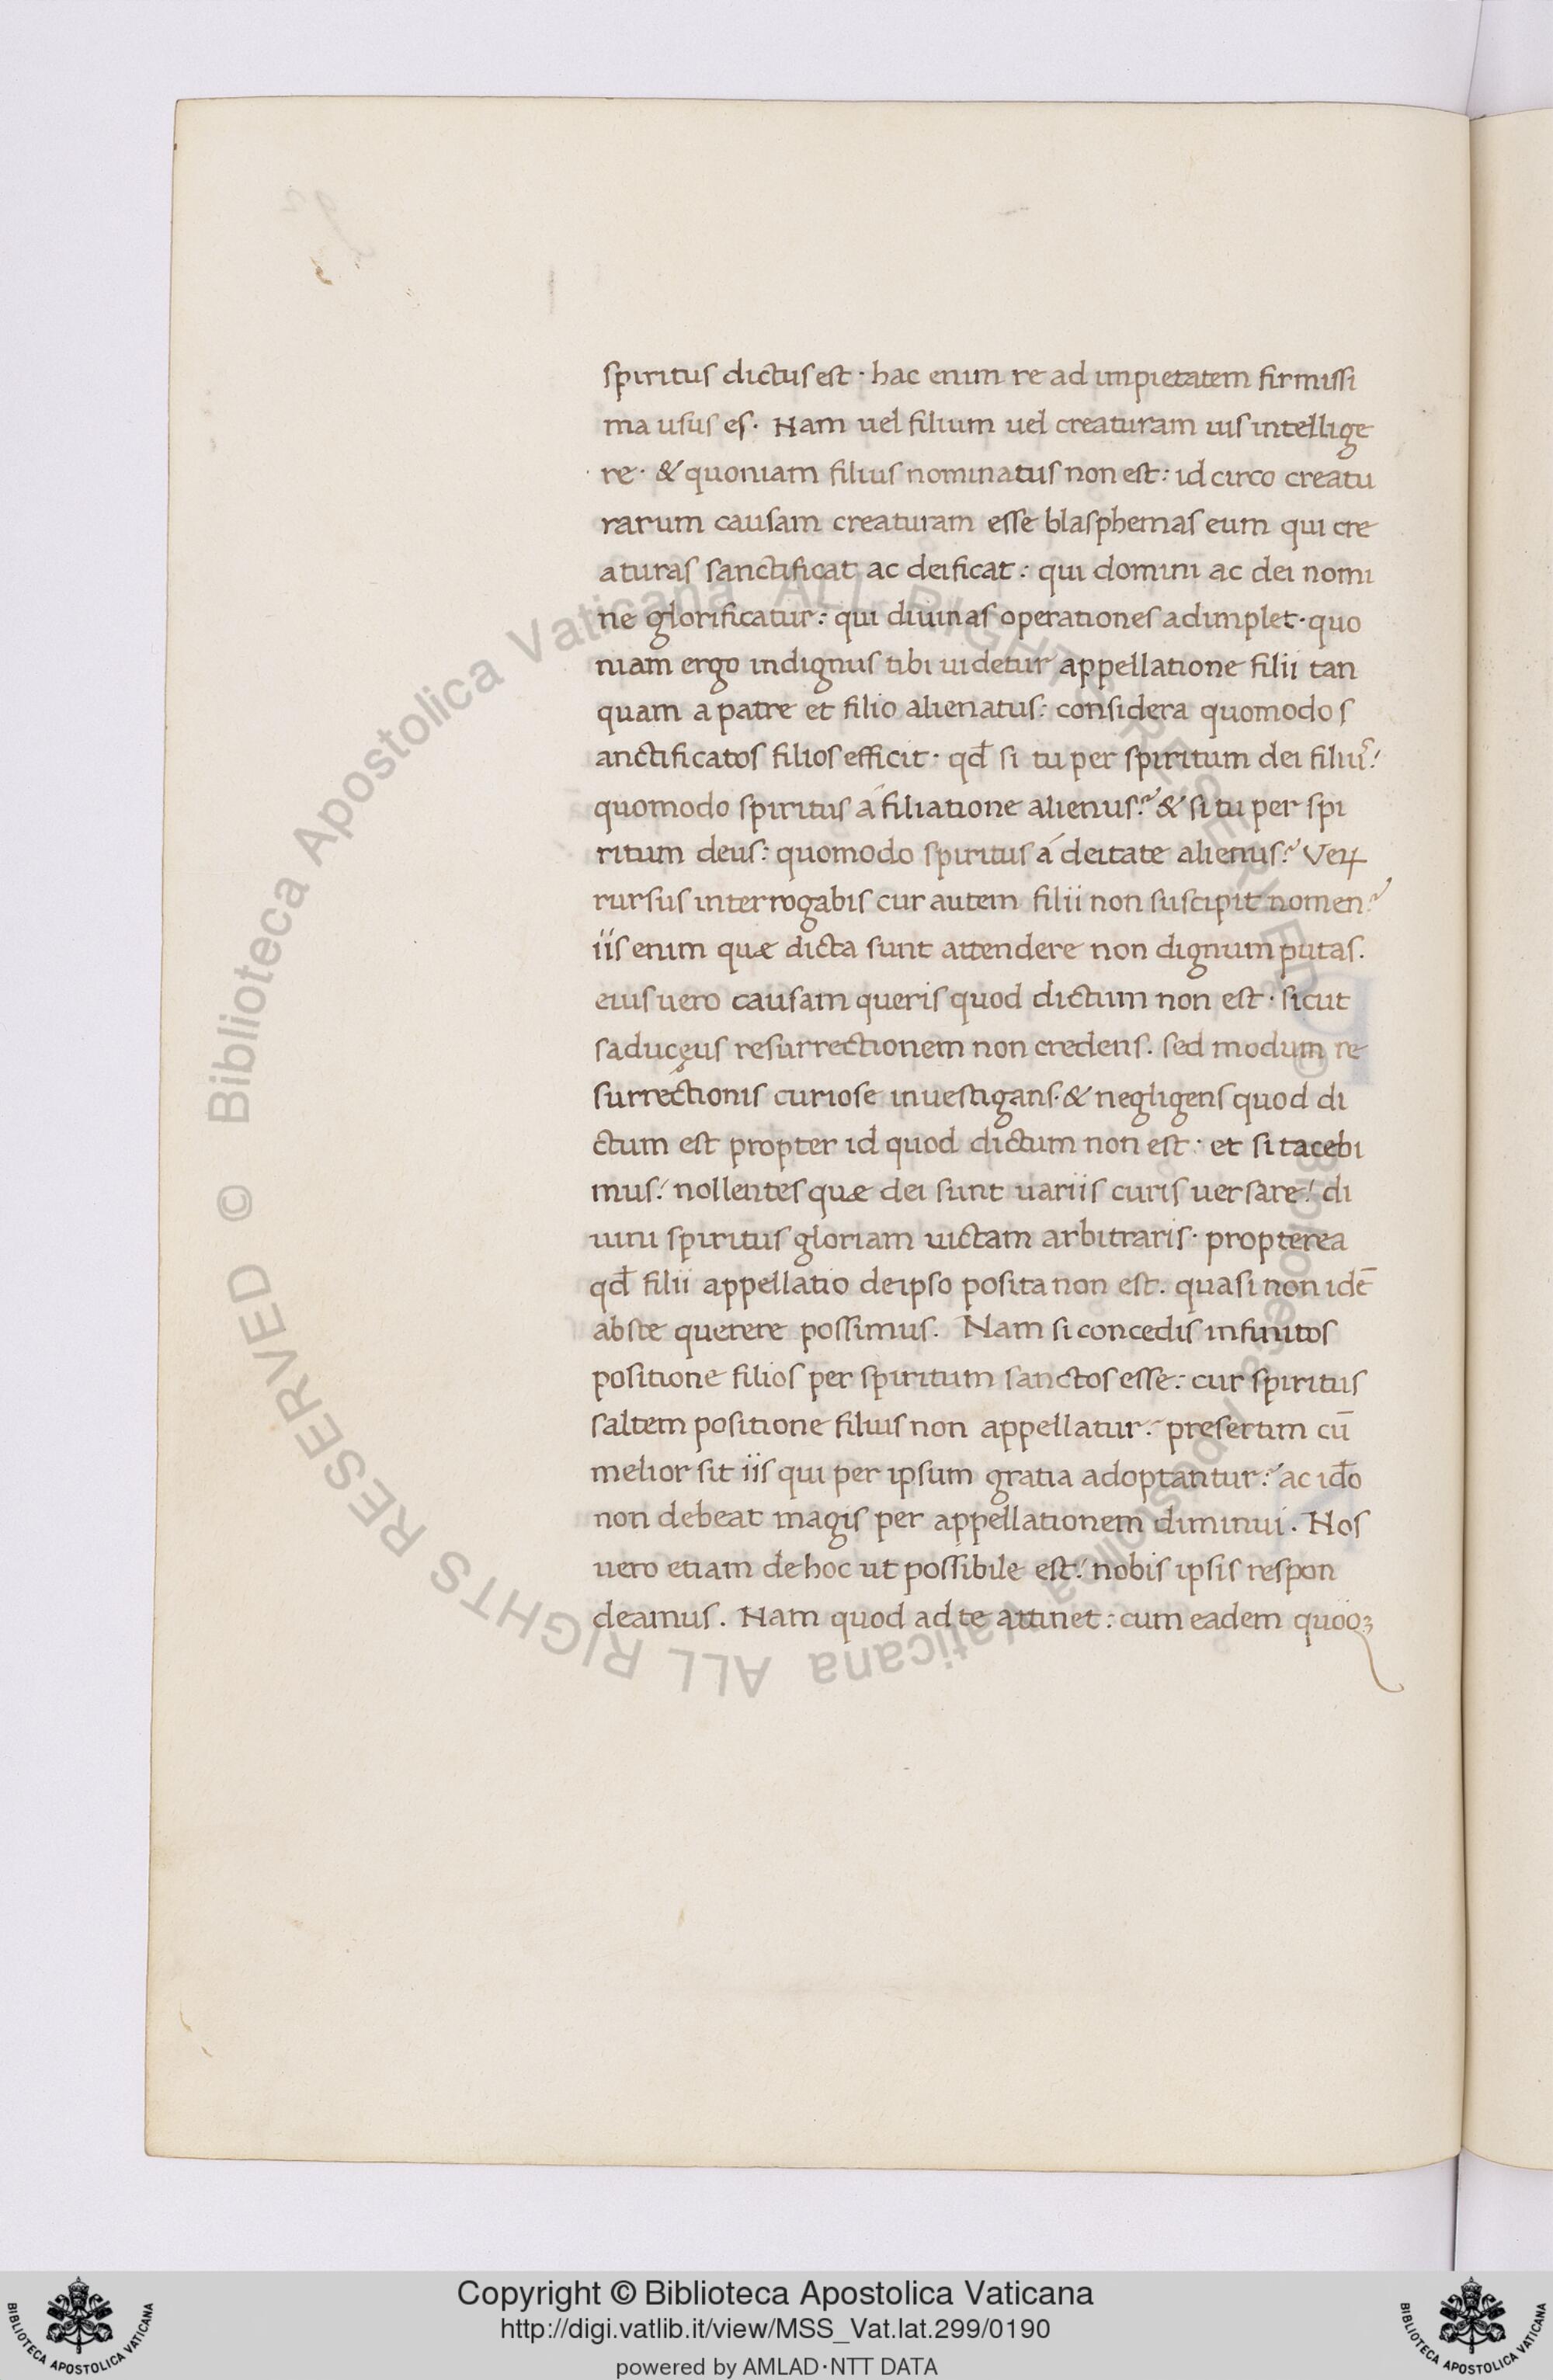 spiritus dictus est · hac enim re ad impietatem firmissi
ma usus es · Nam uel filium uel creaturam uis intellige
re · & quoniam filius nominatus non est : id circo creatu
rarum causam creaturam esse blasphemas eum qui cre
aturas sanctificat ac deificat : qui domini ac dei nomi
ne glorificatur : qui diuinas operationes adimplet · quo
niam ergo indignus tibi uidetur appellatione filii tan
quam a patre et filio alienatus : considera quomodo s
anctificatos filios efficit · qđ si tu per spiritum dei filius :
quomodo spiritus á filiatione alienus ? & si tu per spi
ritum deus : quomodo spiritus á deitate alienus ? Veꝝ
rursus interrogabis cur autem filii non suscipit nomen ?
iis enim quæ dicta sunt attendere non dignum putas .
eius uero causam queris quod dictum non est · sicut
saducęus resurrectionem non credens . sed modum re
surrectionis curiose inuestigans · & negligens quod di
ctum est propter id quod dictum non est · et si tacebi
mus : nollentes quæ dei sunt uariis curis uersare : di
uini spiritus gloriam uictam arbitraris · propterea
qđ filii appellatio de ipso posita non est . quasi non idē
abs te querere possimus . Nam si concedis infinitos
positione filios per spiritum sanctos esse : cur spiritus
saltem positione filius non appellatur : presertim cū
melior sit iis qui per ipsum gratia adoptantur : ac iđo
non debeat magis per appellationem diminui . Nos
uero etiam de hoc ut possibile est : nobis ipsis respon
deamus . Nam quod ad te attinet : cum eadem quoqꝫ
© Biblioteca Apostolica Vaticana ALL RIGHTS RESERVED
© Biblioteca Apostolica Vaticana ALL RIGHTS RESERVED
Copyright © Biblioteca Apostolica Vaticana
http://digi.vatlib.it/view/MSS_Vat.lat.299/0190
powered by AMLAD·NTT DATA
BIBLIOTECA APOSTOLICA VATICANA
BIBLIOTECA APOSTOLICA VATICANA